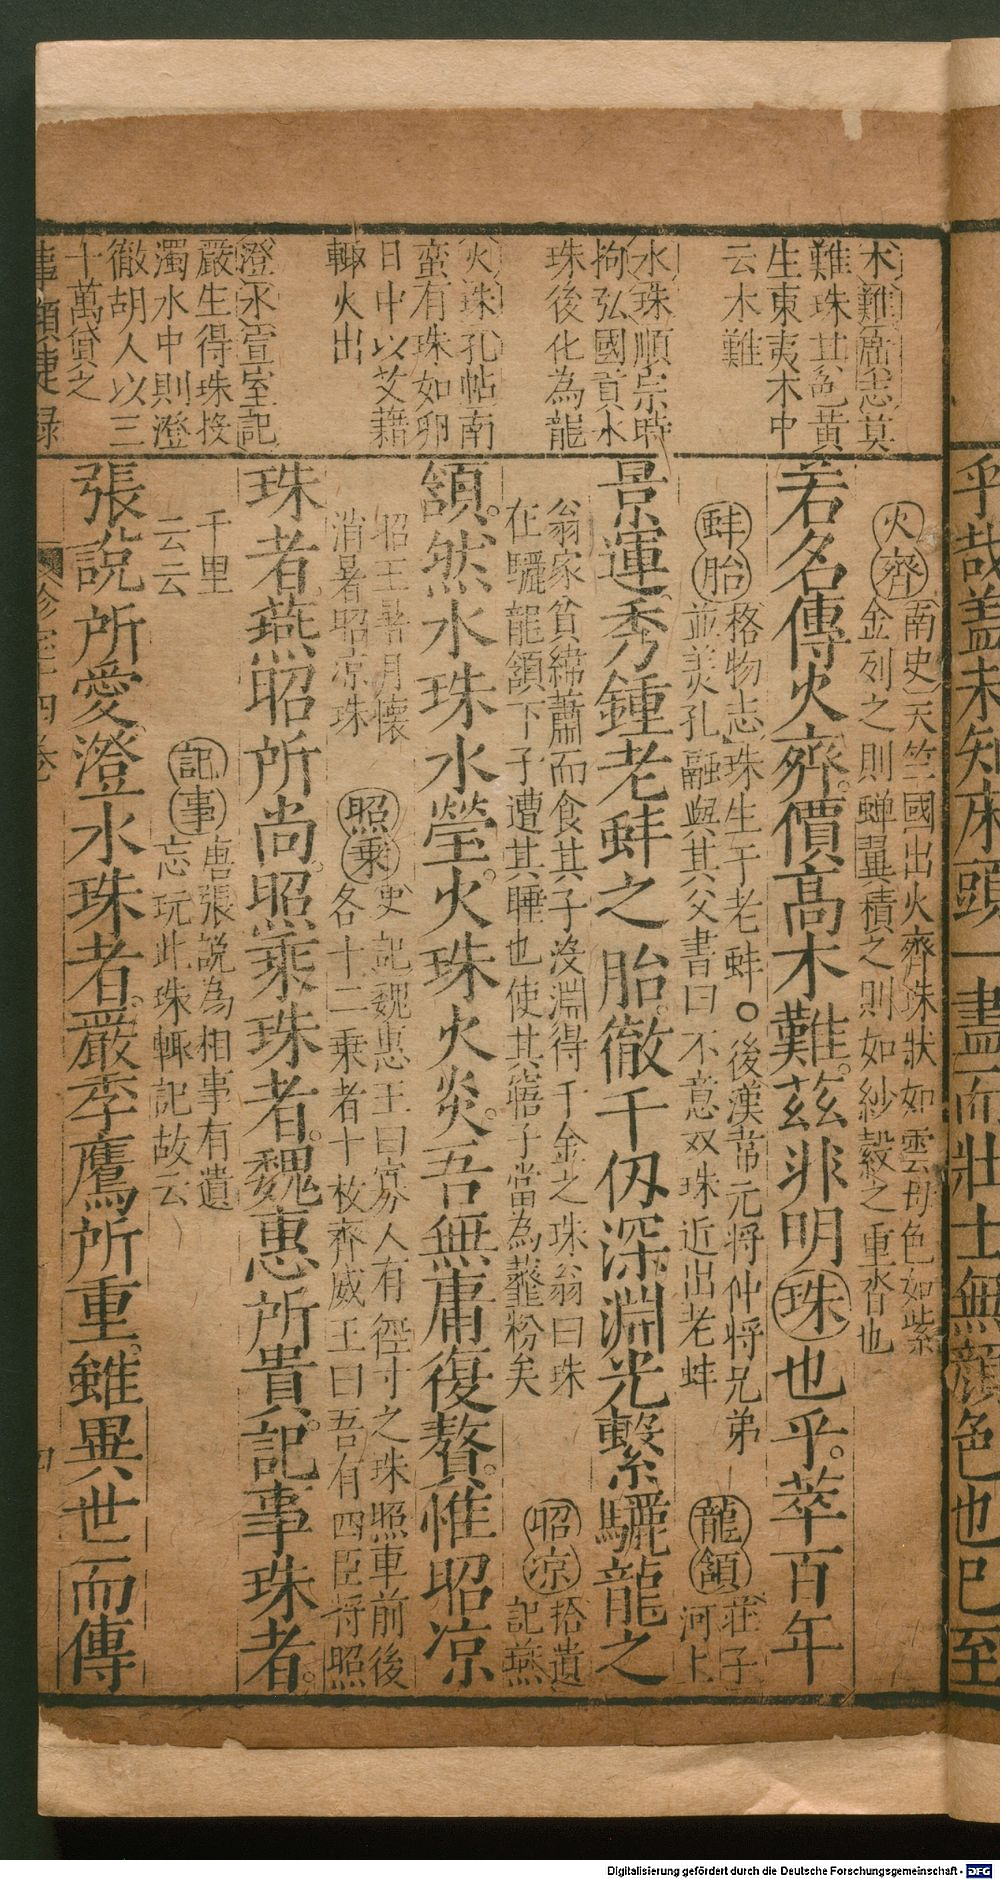 木難廣志莫
難珠其色黃
生東夷木中
云木難
水珠順宗時
拘弘國貢水
珠後化為龍
火珠孔帖南
蛮有珠如卵
日中以艾藉
輙火出
澄水宣室記
嚴生得珠投
濁水中則澄
徹胡人以三
十萬貸之
火齊南史天竺國出火齊珠狀如雲母色如紫
金列之則蟬翼積之則如紗縠之重沓也
若名傳火齊價高木難茲非明珠也乎萃百年
蚌胎格物志珠生于老蚌○後漢韋元将仲将兄弟
並美孔融與其父書曰不意双珠近出老蚌
龍頷莊子
河上
景運秀鍾老蚌之胎徹千仭深淵光繫驪龍之
翁家貧緯蕭而食其子没淵得千金之珠翁曰珠
在驪龍頷下子遭其睡也使其寤子當為虀粉矣
昭凉拾遺
記燕
頷然水珠水瑩火珠火炎吾無庸復贅惟昭凉
昭王暑月懐
消暑昭凉珠
照乗史記魏惠王曰寡人有徑寸之珠照車前後
各十二乗者十枚齊威王曰吾有四臣将照
珠者燕昭所尚照乘珠者魏惠所貴記事珠者
千里
云云
記事唐張說為相事有遺
忘玩此珠輙記故云
張說所愛澄水珠者嚴季鷹所重雖異世而傳
事類捷録
卷
乎哉盖未知床頭一盡而壯士無顔色也已至
Digitalisierung gefördert durch die Deutsche Forschungsgemeinschaft - DFG